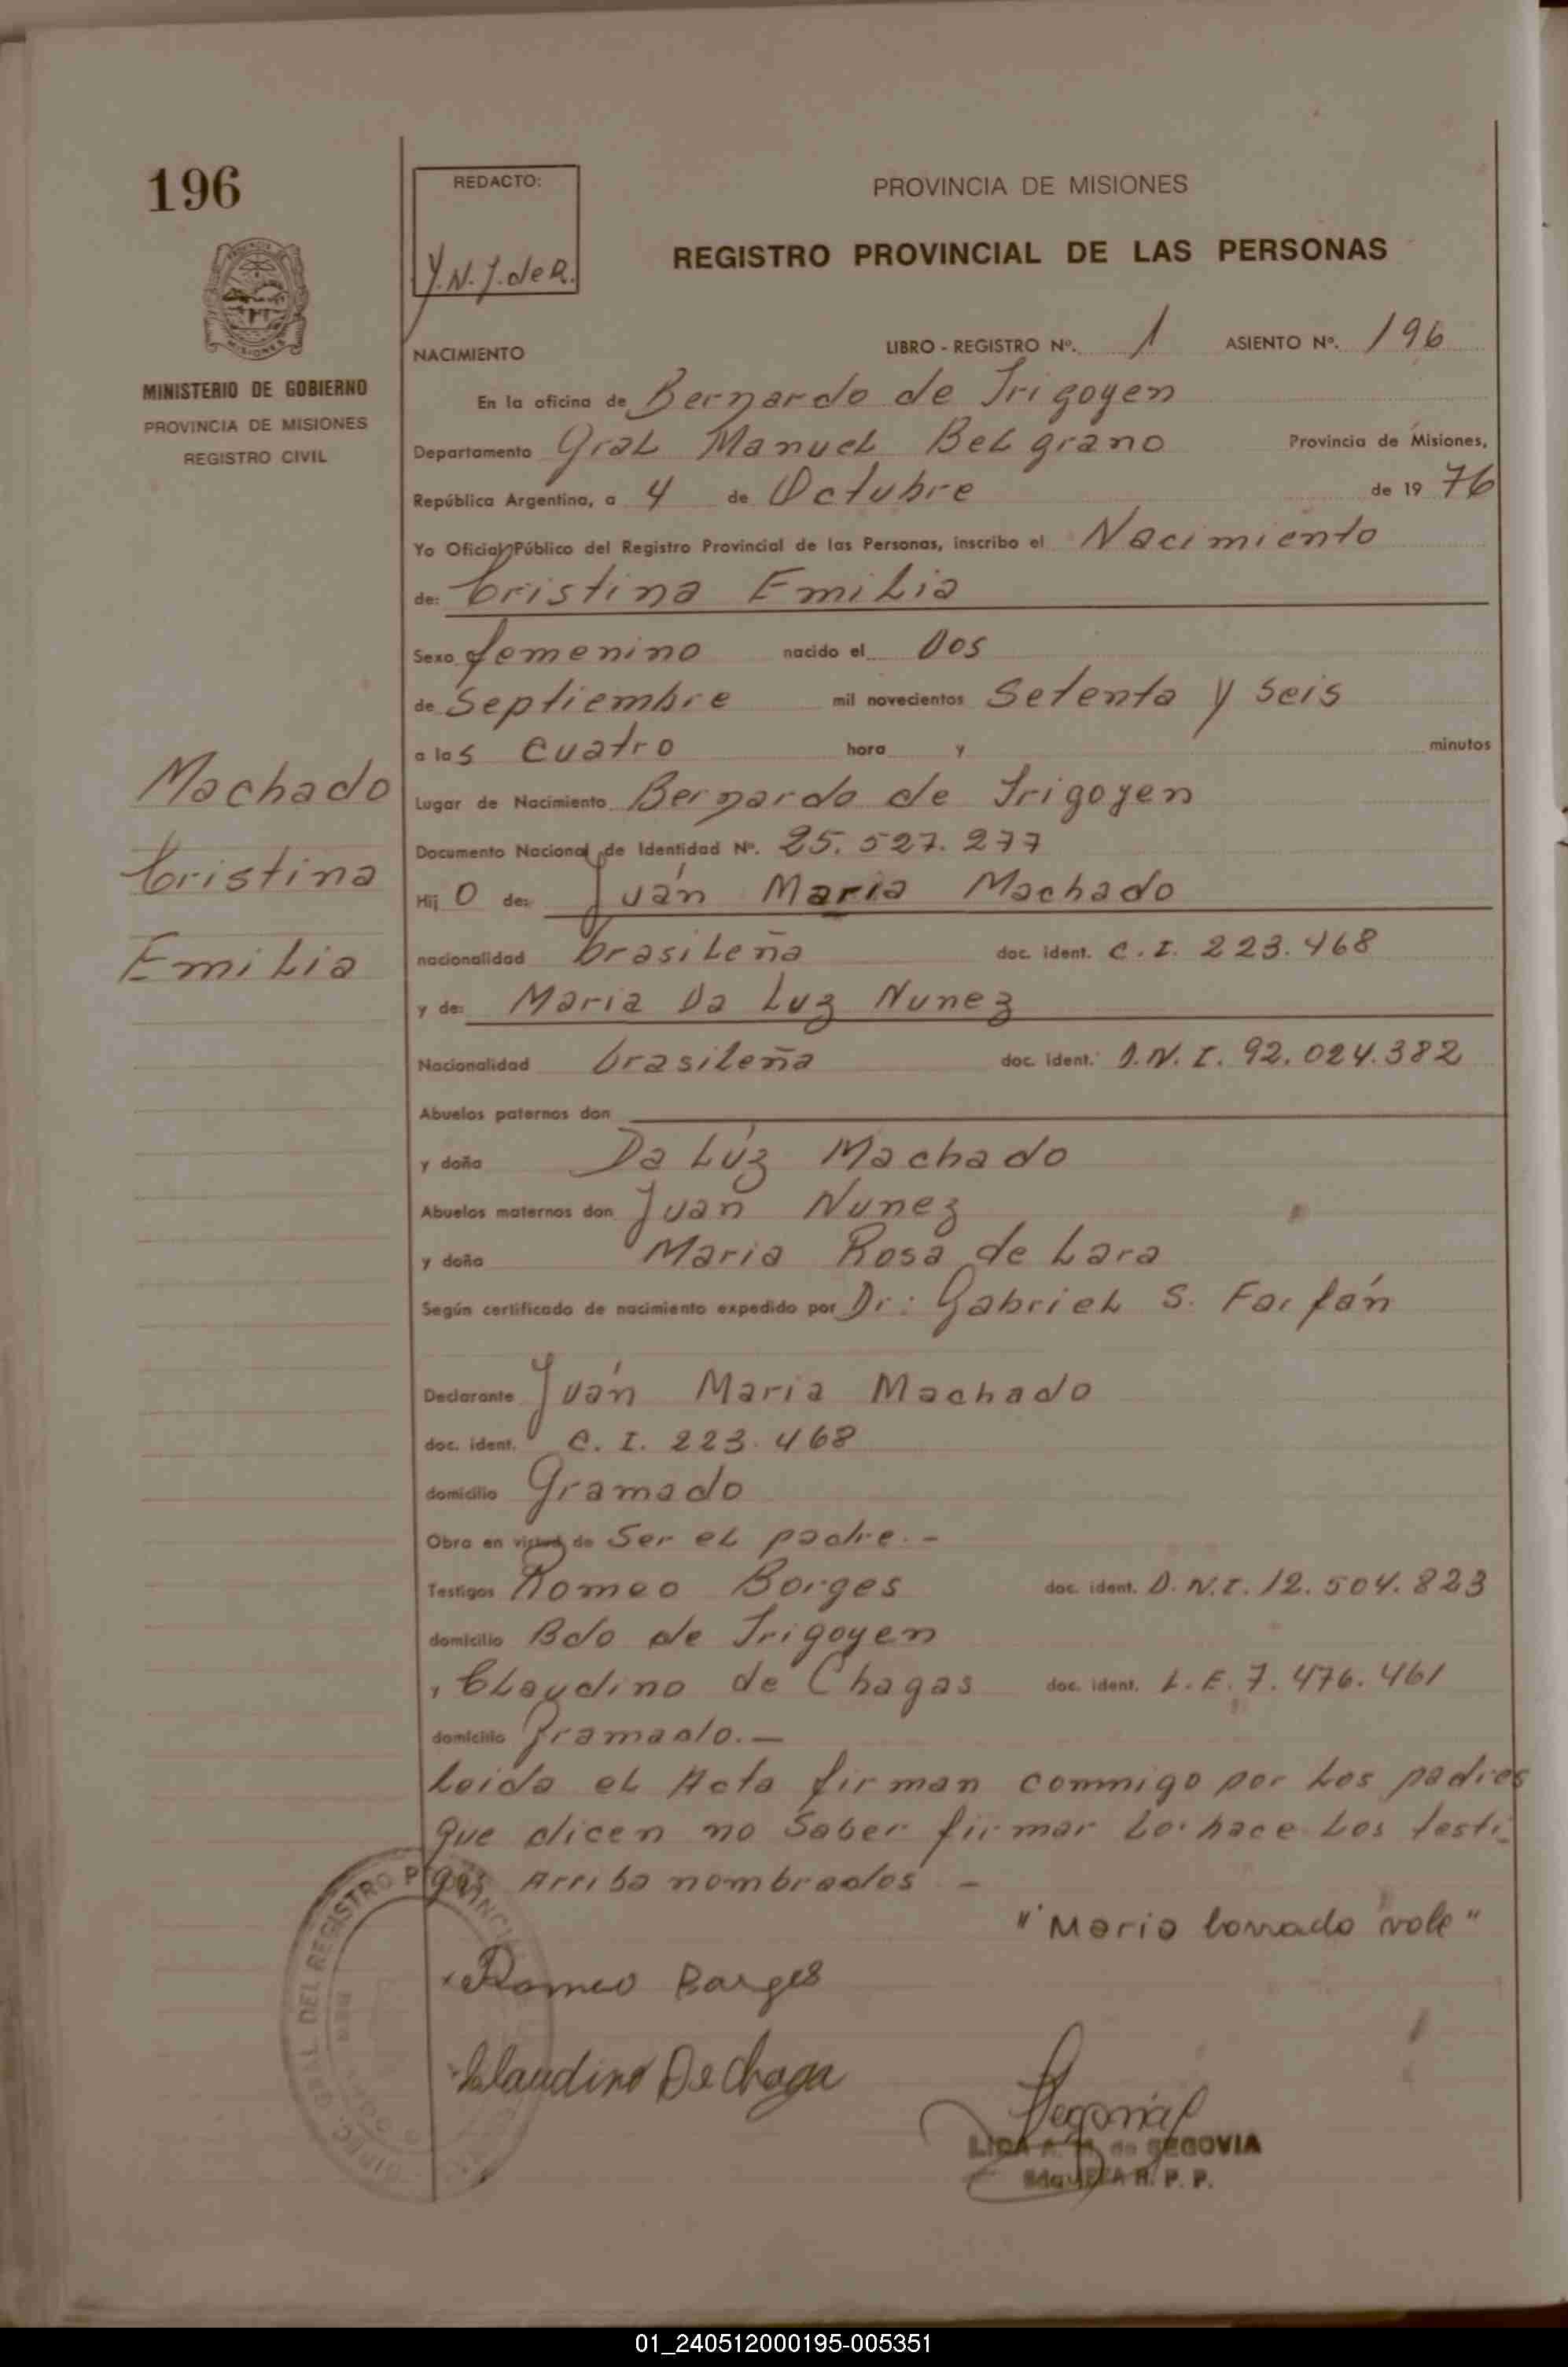 196
REDACTO:
Y.N.J. de R.
PROVINCIA DE MISIONES
REGISTRO PROVINCIAL DE LAS PERSONAS
MINISTERIO DE GOBIERNO
PROVINCIA DE MISIONES
REGISTRO CIVIL
NACIMIENTO LIBRO - REGISTRO Nº. 1 ASIENTO Nº. 196
En la oficina de Bernardo de Irigoyen
Departamento Gral Manuel Belgrano Provincia de Misiones,
República Argentina, a 4 de Octubre de 19 76
Yo Oficial Público del Registro Provincial de las Personas, inscribo el Nacimiento
de: Cristina Emilia
Sexo femenino nacido el Dos
de Septiembre mil novecientos Setenta y Seis
a las cuatro hora y minutos
Lugar de Nacimiento Bernardo de Irigoyen
Documento Nacional de Identidad Nº. 25.527.277
Hij O de: Juán Maria Machado
nacionalidad brasileña doc. ident. C.I. 223.468
y de: Maria Da Luz Nunez
Nacionalidad brasileña doc. ident. D.N.I. 92.024.382
Abuelos paternos don
y doña Da Lúz Machado
Abuelos maternos don Juan Nunez
y doña Maria Rosa de Lara
Según certificado de nacimiento expedido por Dr: Gabriel S. Farfán
Declarante Juán Maria Machado
doc. ident. C.I. 223.468
domicilio Gramado
Obra en virtud de Ser el padre.-
Testigos Romeo Borges doc. ident. D.N.I. 12.504.823
domicilio Bdo de Irigoyen
, Claudino de Chagas doc. ident. L.E. 7.476.461
domicilio Gramado.—
Leida el Acta firman commigo por Los padres
que dicen no Saber firmar Lo hace Los testi-
gos Arriba nombrados -
"Maria borrado vale"
Machado
Cristina
Emilia
Romeo Barges
Claudino De Chaga
LIDA A. M. de SEGOVIA
R. P. P.
01_240512000195-005351